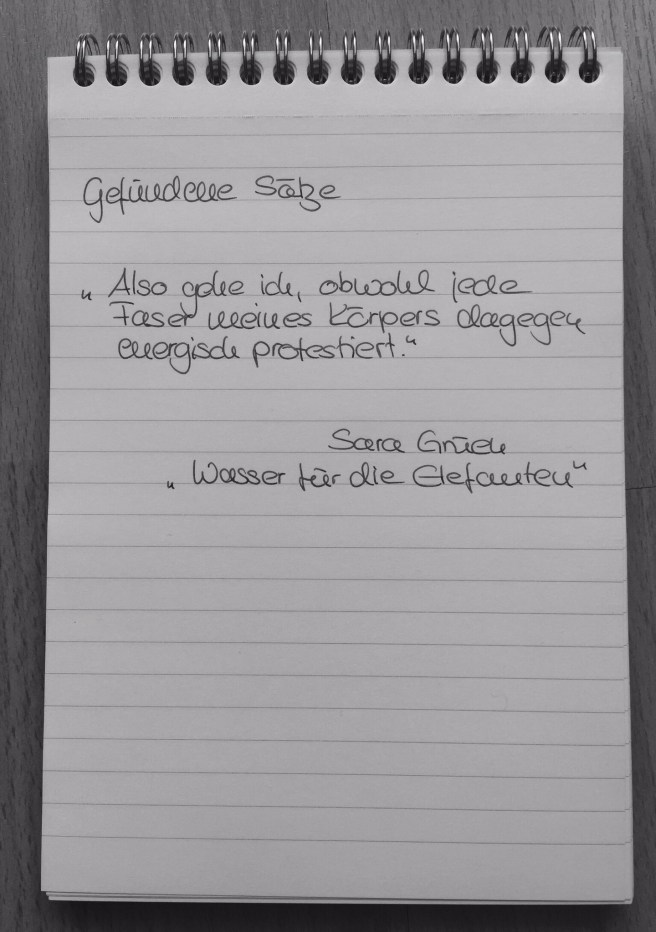 Gefundene Sätze
„Also gehe ich, obwohl jede
Faser meines Körpers dagegen
energisch protestiert."
Sara Gruen
„Wasser für die Elefanten"